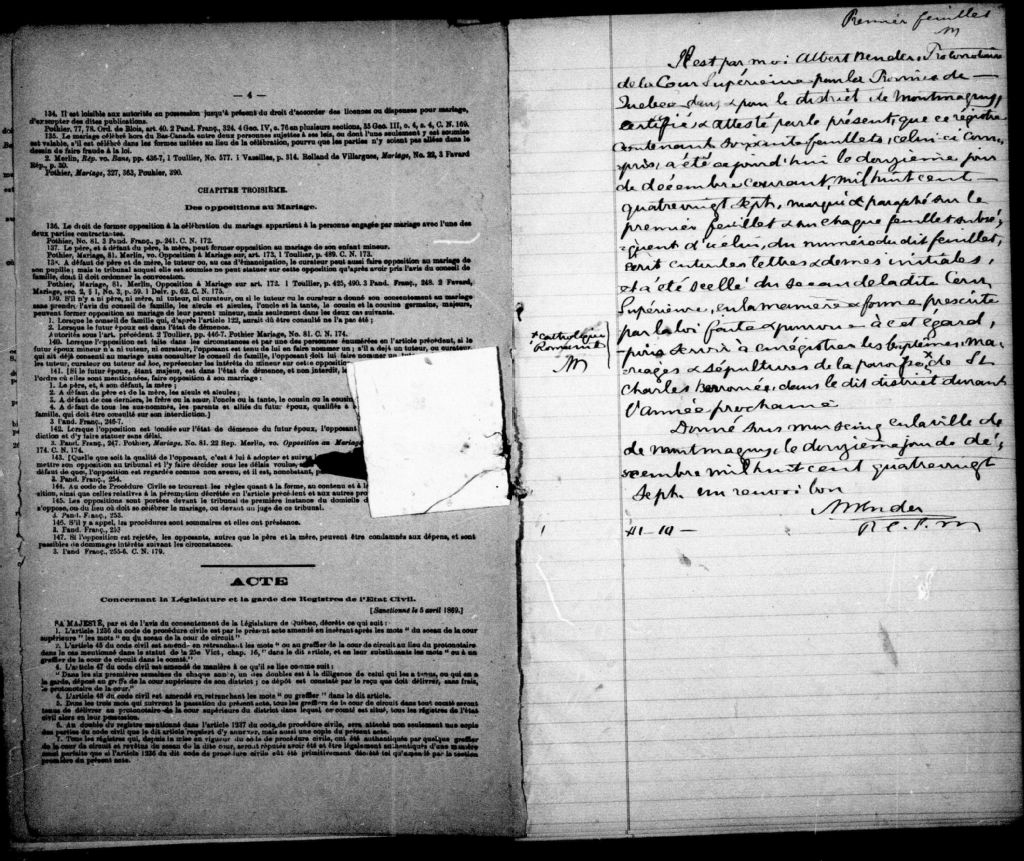 — 4 —
134. Il est loisible aux autorités en possession jusqu'à présent du droit d'accorder des licences ou dispenses pour mariage,
d'exempter des dites publications.
Pothier, 77, 78. Ord. de Blois, art. 40. 2 Pand. Franç., 324. 4 Geo. IV, c. 76 en plusieurs sections, 35 Geo. III, c. 4, s. 4, C. N. 169.
135. Le mariage célébré hors du Bas-Canada entre deux personnes sujettes à ses lois, ou dont l'une seulement y est soumise
est valable, s'il est célébré dans les formes usitées au lieu de la célébration, pourvu que les parties n'y soient pas allées dans le
dessein de faire fraude à la loi.
2 Merlin, Rép. vo. Bans, pp. 436-7, 1 Toullier, No. 577. 1 Vasailles, p. 314. Rolland de Villargues, Mariage, No. 23, 3 Favard
Rép., p. 30.
Pothier, Mariage, 327, 363, Pouhier, 390.
CHAPITRE TROISIÈME.
Des oppositions au Mariage.
136. Le droit de former opposition à la célébration du mariage appartient à la personne engagée par mariage avec l'une des
deux parties contractantes.
Pothier, No. 81. 3 Pand. Franç., p. 241. C. N. 172.
137. Le père, et à défaut du père, la mère, peut former opposition au mariage de son enfant mineur.
Pothier, Mariage, 81. Merlin, vo. Opposition à Mariage sur art. 173, 1 Toullier, p. 489. C. N. 173.
138. A défaut de père et de mère, le tuteur ou, au cas d'émancipation, le curateur peut aussi faire opposition au mariage de
son pupille; mais le tribunal auquel elle est soumise ne peut statuer sur cette opposition qu'après avoir pris l'avis du conseil de
famille, dont il doit ordonner la convocation.
Pothier, Mariage, 81. Merlin, Opposition à Mariage sur art. 172. 1 Toullier, p. 425, 490. 3 Pand. Franç., 248. 2 Favard,
Mariage, sec. 2, § 1, No. 3, p. 59. 1 Delv. p. 62. C. N. 175.
139. S'il n'y a ni père, ni mère, ni tuteur, ni curateur, ou si le tuteur ou le curateur a donné son consentement au mariage
sans prendre l'avis du conseil de famille, les aïeuls et aïeules, l'oncle et la tante, le cousin et la cousine germains, majeurs,
peuvent former opposition au mariage de leur parent mineur, mais seulement dans les deux cas suivants.
1. Lorsque le conseil de famille qui, d'après l'article 122, aurait dû être consulté ne l'a pas été;
2. Lorsque le futur époux est dans l'état de démence.
Autorités sous l'art. précédent 2 Toullier, pp. 446-7. Pothier Mariage, No. 81. C. N. 174.
140. Lorsque l'opposition est faite dans les circonstances et par une des personnes énumérées en l'article précédent, si le
futur époux mineur n'a ni tuteur, ni curateur, l'opposant est tenu de lui en faire nommer un; s'il a déjà un tuteur, ou curateur,
qui ait déjà consenti au mariage sans consulter le conseil de famille, l'opposant doit lui faire nommer un
les tuteur, curateur ou tuteur ad hoc, représenter les intérêts du mineur sur cette opposition
141. [Si le futur époux, étant majeur, est dans l'état de démence, et non interdit,
l'ordre où elles sont mentionnées, faire opposition à son mariage:
1. Le père, et, à son défaut, la mère;
2. A défaut du père et de la mère, les aïeuls et aïeules;
3. A défaut de ces derniers, le frère ou la sœur, l'oncle ou la tante, le cousin ou la cousine
4. A défaut de tous les sus-nommés, les parents et alliés du futur époux, qualifiés à
famille, qui doit être consulté sur son interdiction.]
3 Pand. Franç., 246-7.
142. Lorsque l'opposition est fondée sur l'état de démence du futur époux, l'opposant
diction et d'y faire statuer sans délai.
3. Pand. Franç., 247. Pothier, Mariage, No. 81. 22 Rep. Merlin, vo. Opposition au Mariage
174. C. N. 174.
143. [Quelle que soit la qualité de l'opposant, c'est à lui à adopter et suivre
mettre son opposition au tribunal et l'y faire décider sous les délais voulus
défaut de quoi, l'opposition est regardée comme non avenu, et il est, nonobstant,
3. Pand. Franç., 254.
144. Au code de Procédure Civile se trouvent les règles quant à la forme, au contenu et à
sition, ainsi que celles relatives à la péremption décrétée en l'article précédent et aux autres
145. Les oppositions sont portées devant le tribunal de première instance du domicile
s'oppose, ou du lieu où doit se célébrer le mariage, ou devant un juge de ce tribunal.
3. Pand. Franç., 253.
146. S'il y a appel, les procédures sont sommaires et elles ont préséance.
3. Pand. Franç., 253
147. Si l'opposition est rejetée, les opposants, autres que le père et la mère, peuvent être condamnés aux dépens, et sont
passibles de dommages intérêts suivant les circonstances.
3. Pand Franç., 255-6. C. N. 179.
ACTE
Concernant la Législature et la garde des Registres de l'Etat Civil.
[Sanctionné le 5 avril 1869.]
SA MAJESTÉ, par et de l'avis du consentement de la Législature de Québec, décrète ce qui suit:
1. L'article 1236 du code de procédure civile est par le présent acte amendé en insérant après les mots " du sceau de la cour
supérieure " les mots " ou du sceau de la cour de circuit"
2. L'article 45 du code civil est amendé en retranchant les mots " ou au greffier de la cour de circuit au lieu du protonotaire
dans le cas mentionné dans le statut de la 25e Vict., chap. 16," dans le dit article, et en leur substituant les mots " ou à un
greffier de la cour de circuit dans le comté."
3. L'article 47 du code civil est amendé de manière à ce qu'il se lise comme suit:
" Dans les six premières semaines de chaque année, un des doubles est à la diligence de celui qui les a tenus, ou qui en a
la garde, déposé au greffe de la cour supérieure de son district; ce dépôt est constaté par le reçu que doit délivrer, sans frais,
le protonotaire de la cour."
4. L'article 48 du code civil est amendé en retranchant les mots " ou greffier " dans le dit article.
5. Dans les trois mois qui suivront la passation du présent acte, tous les greffiers de la cour de circuit dans tout comté seront
tenus de délivrer au protonotaire de la cour supérieure du district dans lequel ce comté est situé, tous les registres de l'état
civil alors en leur possession.
6. Au double du registre mentionné dans l'article 1237 du code de procédure civile, sera attaché non seulement une copie
des parties du code civil que le dit article requiert d'y annexer, mais aussi une copie du présent acte.
7. Tous les registres qui, depuis la mise en vigueur du code de procédure civile, ont été authentiqués par quelque greffier
de la cour de circuit et revêtus du sceau de la dite cour, seront réputés avoir été et être légalement authentiqués d'une manière
aussi parfaite que si l'article 1236 du dit code de procédure civile eût été primitivement décrété tel qu'amendé par la section
première du présent acte.
Premier feuillet
M
Il est par moi Albert Bender, Protonotaire
de la Cour Supérieure pour la Province de —
Quebec dans & pour le district de Montmagny,
certifié & attesté par le présent, que ce registre
contenant soixante feuillets, celui-ci com-
pris, a été ce jourd'hui le douzième jour
de décembre courant, mil huit cent —
quatrevingt sept, marqué & paraphé sur le
premier feuillet & sur chaque feuillet subsé-
quent d'icelui, du numéro du dit feuillet,
écrit en toutes lettres & de mes initiales,
et a été scellé du sceau de la dite Cour
Supérieure, en la manière & forme prescrite
par la loi faite & pourvue à cet égard,
pour servir à enregistrer les baptêmes, ma-
riages & sépultures de la paroisse × de St
Charles Borromée, dans le dit district durant
l'année prochaine
Donné sous mon seing en la ville de
de Montmagny, le douzième jour de dé-
cembre mil huit cent quatrevingt
sept. un renvoi bon
ABender
P. C. S. M
× Catholique
Romaine
M